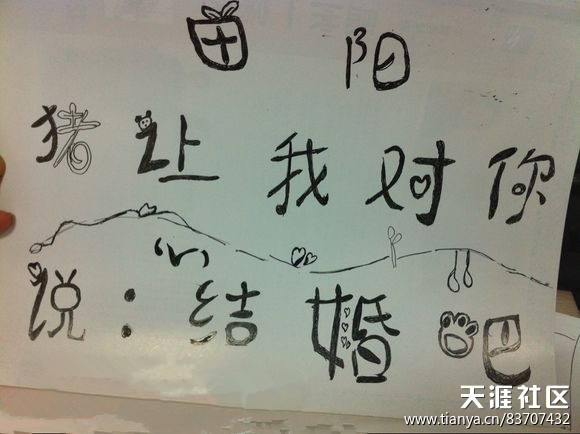 田 阳
猪 让 我 对 你
说：“结 婚 吧”
天涯社区
www.tianya.cn/83707432